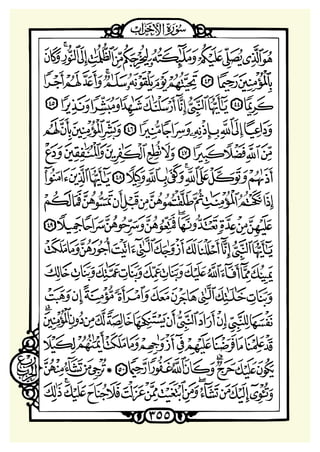 سُورَةُ الْأَحْزَابِ
هُوَ ٱلَّذِى يُصَلِّى عَلَيْكُمْ وَمَلَٰٓئِكَتُهُۥ لِيُخْرِجَكُم مِّنَ ٱلظُّلُمَٰتِ إِلَى ٱلنُّورِ وَكَانَ
بِٱلْمُؤْمِنِينَ رَحِيمًا ٤٣ تَحِيَّتُهُمْ يَوْمَ يَلْقَوْنَهُۥ سَلَٰمٌ وَأَعَدَّ لَهُمْ أَجْرًا
كَرِيمًا ٤٤ يَٰٓأَيُّهَا ٱلنَّبِىُّ إِنَّآ أَرْسَلْنَٰكَ شَٰهِدًا وَمُبَشِّرًا وَنَذِيرًا ٤٥
وَدَاعِيًا إِلَى ٱللَّهِ بِإِذْنِهِۦ وَسِرَاجًا مُّنِيرًا ٤٦ وَبَشِّرِ ٱلْمُؤْمِنِينَ بِأَنَّ لَهُم
مِّنَ ٱللَّهِ فَضْلًا كَبِيرًا ٤٧ وَلَا تُطِعِ ٱلْكَٰفِرِينَ وَٱلْمُنَٰفِقِينَ وَدَعْ
أَذَىٰهُمْ وَتَوَكَّلْ عَلَى ٱللَّهِ وَكَفَىٰ بِٱللَّهِ وَكِيلًا ٤٨ يَٰٓأَيُّهَا ٱلَّذِينَ ءَامَنُوٓا۟
إِذَا نَكَحْتُمُ ٱلْمُؤْمِنَٰتِ ثُمَّ طَلَّقْتُمُوهُنَّ مِن قَبْلِ أَن تَمَسُّوهُنَّ فَمَا لَكُمْ
عَلَيْهِنَّ مِنْ عِدَّةٍ تَعْتَدُّونَهَا فَمَتِّعُوهُنَّ وَسَرِّحُوهُنَّ سَرَاحًا جَمِيلًا ٤٩
يَٰٓأَيُّهَا ٱلنَّبِىُّ إِنَّآ أَحْلَلْنَا لَكَ أَزْوَٰجَكَ ٱلَّٰتِىٓ ءَاتَيْتَ أُجُورَهُنَّ وَمَا مَلَكَتْ
يَمِينُكَ مِمَّآ أَفَآءَ ٱللَّهُ عَلَيْكَ وَبَنَاتِ عَمِّكَ وَبَنَاتِ عَمَّٰتِكَ وَبَنَاتِ خَالِكَ
وَبَنَاتِ خَٰلَٰتِكَ ٱلَّٰتِى هَاجَرْنَ مَعَكَ وَٱمْرَأَةً مُّؤْمِنَةً إِن وَهَبَتْ
نَفْسَهَا لِلنَّبِىِّ إِنْ أَرَادَ ٱلنَّبِىُّ أَن يَسْتَنكِحَهَا خَالِصَةً لَّكَ مِن دُونِ ٱلْمُؤْمِنِينَ
قَدْ عَلِمْنَا مَا فَرَضْنَا عَلَيْهِمْ فِىٓ أَزْوَٰجِهِمْ وَمَا مَلَكَتْ أَيْمَٰنُهُمْ لِكَيْلَا
يَكُونَ عَلَيْكَ حَرَجٌ وَكَانَ ٱللَّهُ غَفُورًا رَّحِيمًا ٥٠ ۞ تُرْجِى مَن تَشَآءُ مِنْهُنَّ
وَتُـْٔوِىٓ إِلَيْكَ مَن تَشَآءُ وَمَنِ ٱبْتَغَيْتَ مِمَّنْ عَزَلْتَ فَلَا جُنَاحَ عَلَيْكَ ذَٰلِكَ
٣٥٥